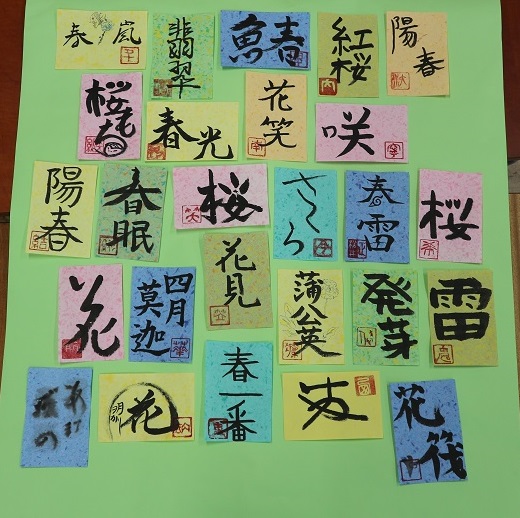 春嵐
翡翠
春
魚
紅桜
陽春
桜
春光
花笑
咲
陽春
春眠
桜
さくら
春雷
桜
花
四月
莫迦
花見
蒲公英
発芽
雷
花
春一番
花筏